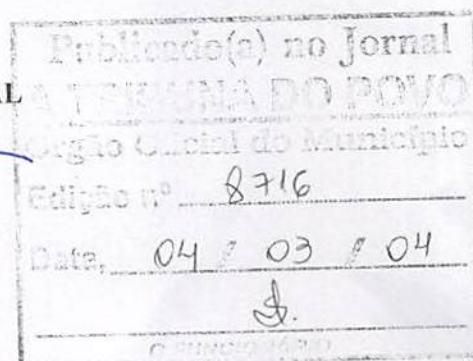 Publicado(a) no Jornal
AL
A TRIBUNA DO POVO
Orgão Oficial do Município
Edição nº 8716
Data, 04 / 03 / 04
O FUNCIONÁRIO